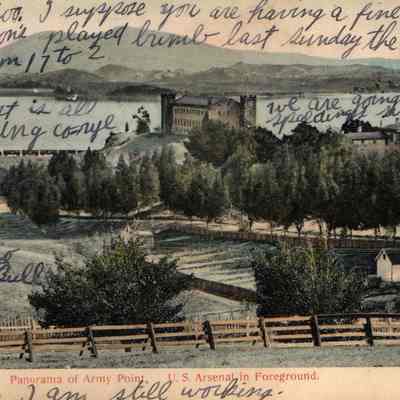 too. I suppose you are having a fine
played bumb last sunday the
17 to 2
is all
we are going
Bull
Panorama of Army Point. U. S. Arsenal in Foreground.
I am still working.